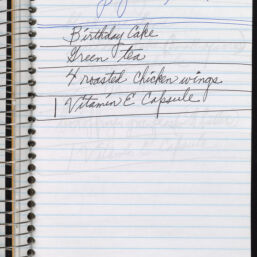 Birthday Cake
Green tea
4 roasted chicken wings
1 Vitamin E Capsule